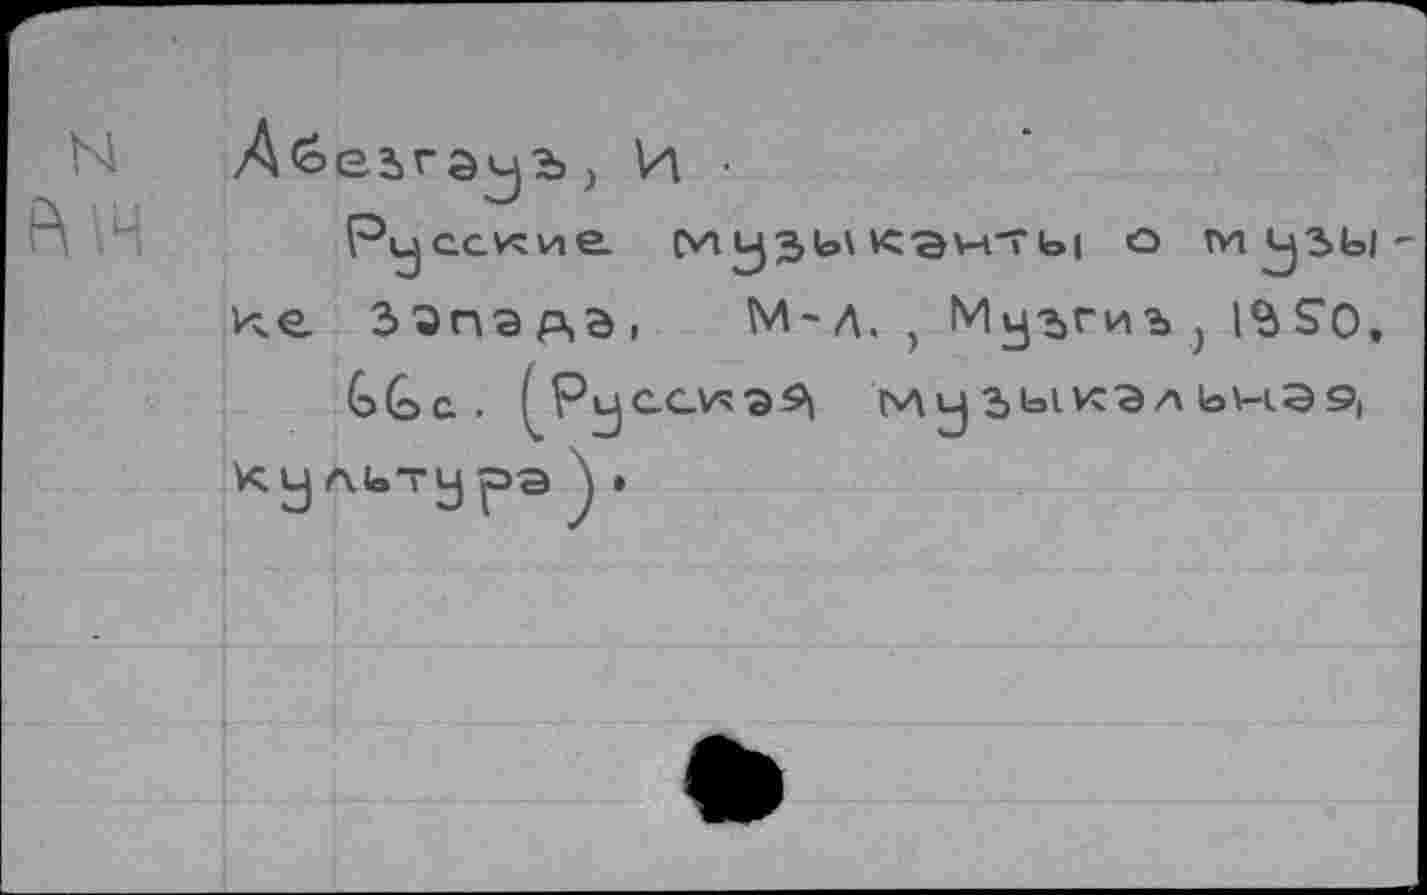 N
A 14
Абезгауз, И.
Русские музыканты о музы-
ке Запада, М-Л., Музгиз, 1950.
66с. (Русская музыкальная
культура).